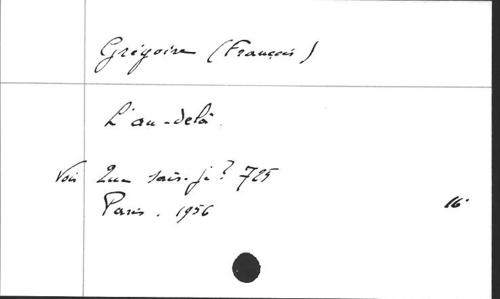 Grégoire (François)
L'au-delà.
Voir Que sais-je? 725
Paris. 1956 16°